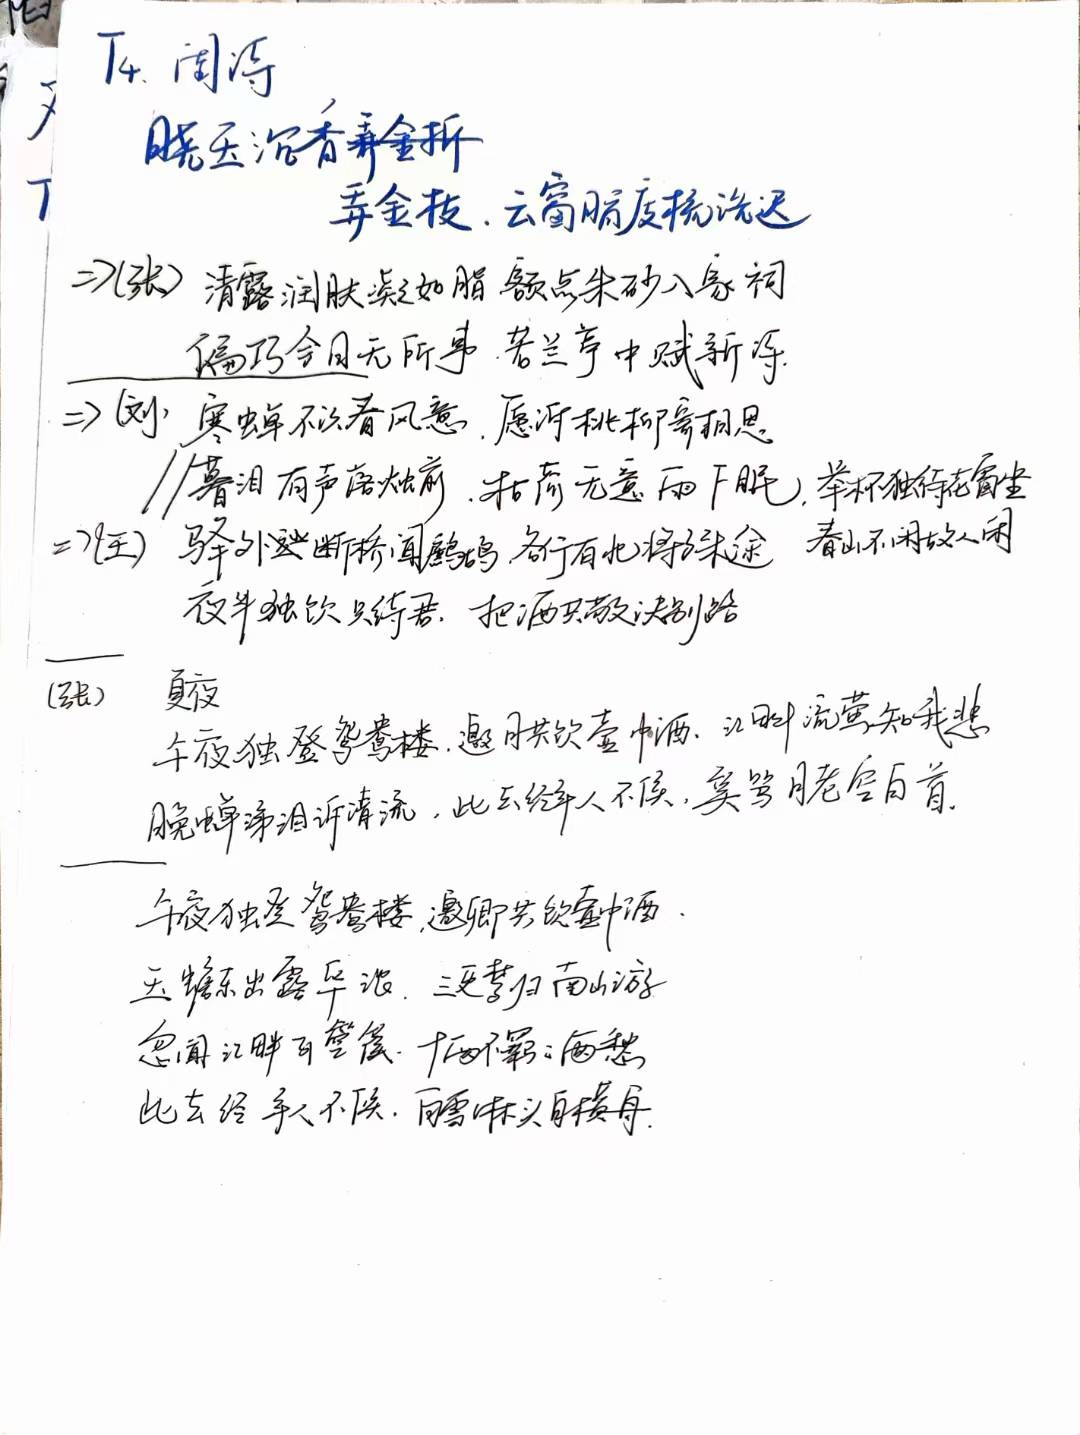 T4. 闺诗
晓玉沉香弄金折
弄金枝、云窗脂度梳洗迟
=>(张) 清露润肤凝如脂 额点朱砂入家祠
偏巧今日无所事、若兰亭中赋新诗.
=>(刘) 寒蝉不识春风意、愿谓桃柳寄相思
//暮泪有声落烛前、枯荷无意雨下眠, 举杯独待花窗坐
=>(王) 驿外断桥闻鹧鸪, 各行有北将殊途 春山不闲故人闲
夜半独饮只待君. 把酒共敬诀别路
(张) 夏夜
午夜独登鸳鸯楼, 邀月共饮壶中酒. 江畔流萤知我悲
晚蝉涕泪诉清流, 此去经年人不侯, 奚笃月老空白首.
午夜独登鸳鸯楼, 邀卿共饮壶中酒.
玉蟾东出露华浓. 三更梦归南山游
忽闻江畔百箜篌. 十面不羁三两愁
此去经年人不侯. 白雪淋头自横舟.